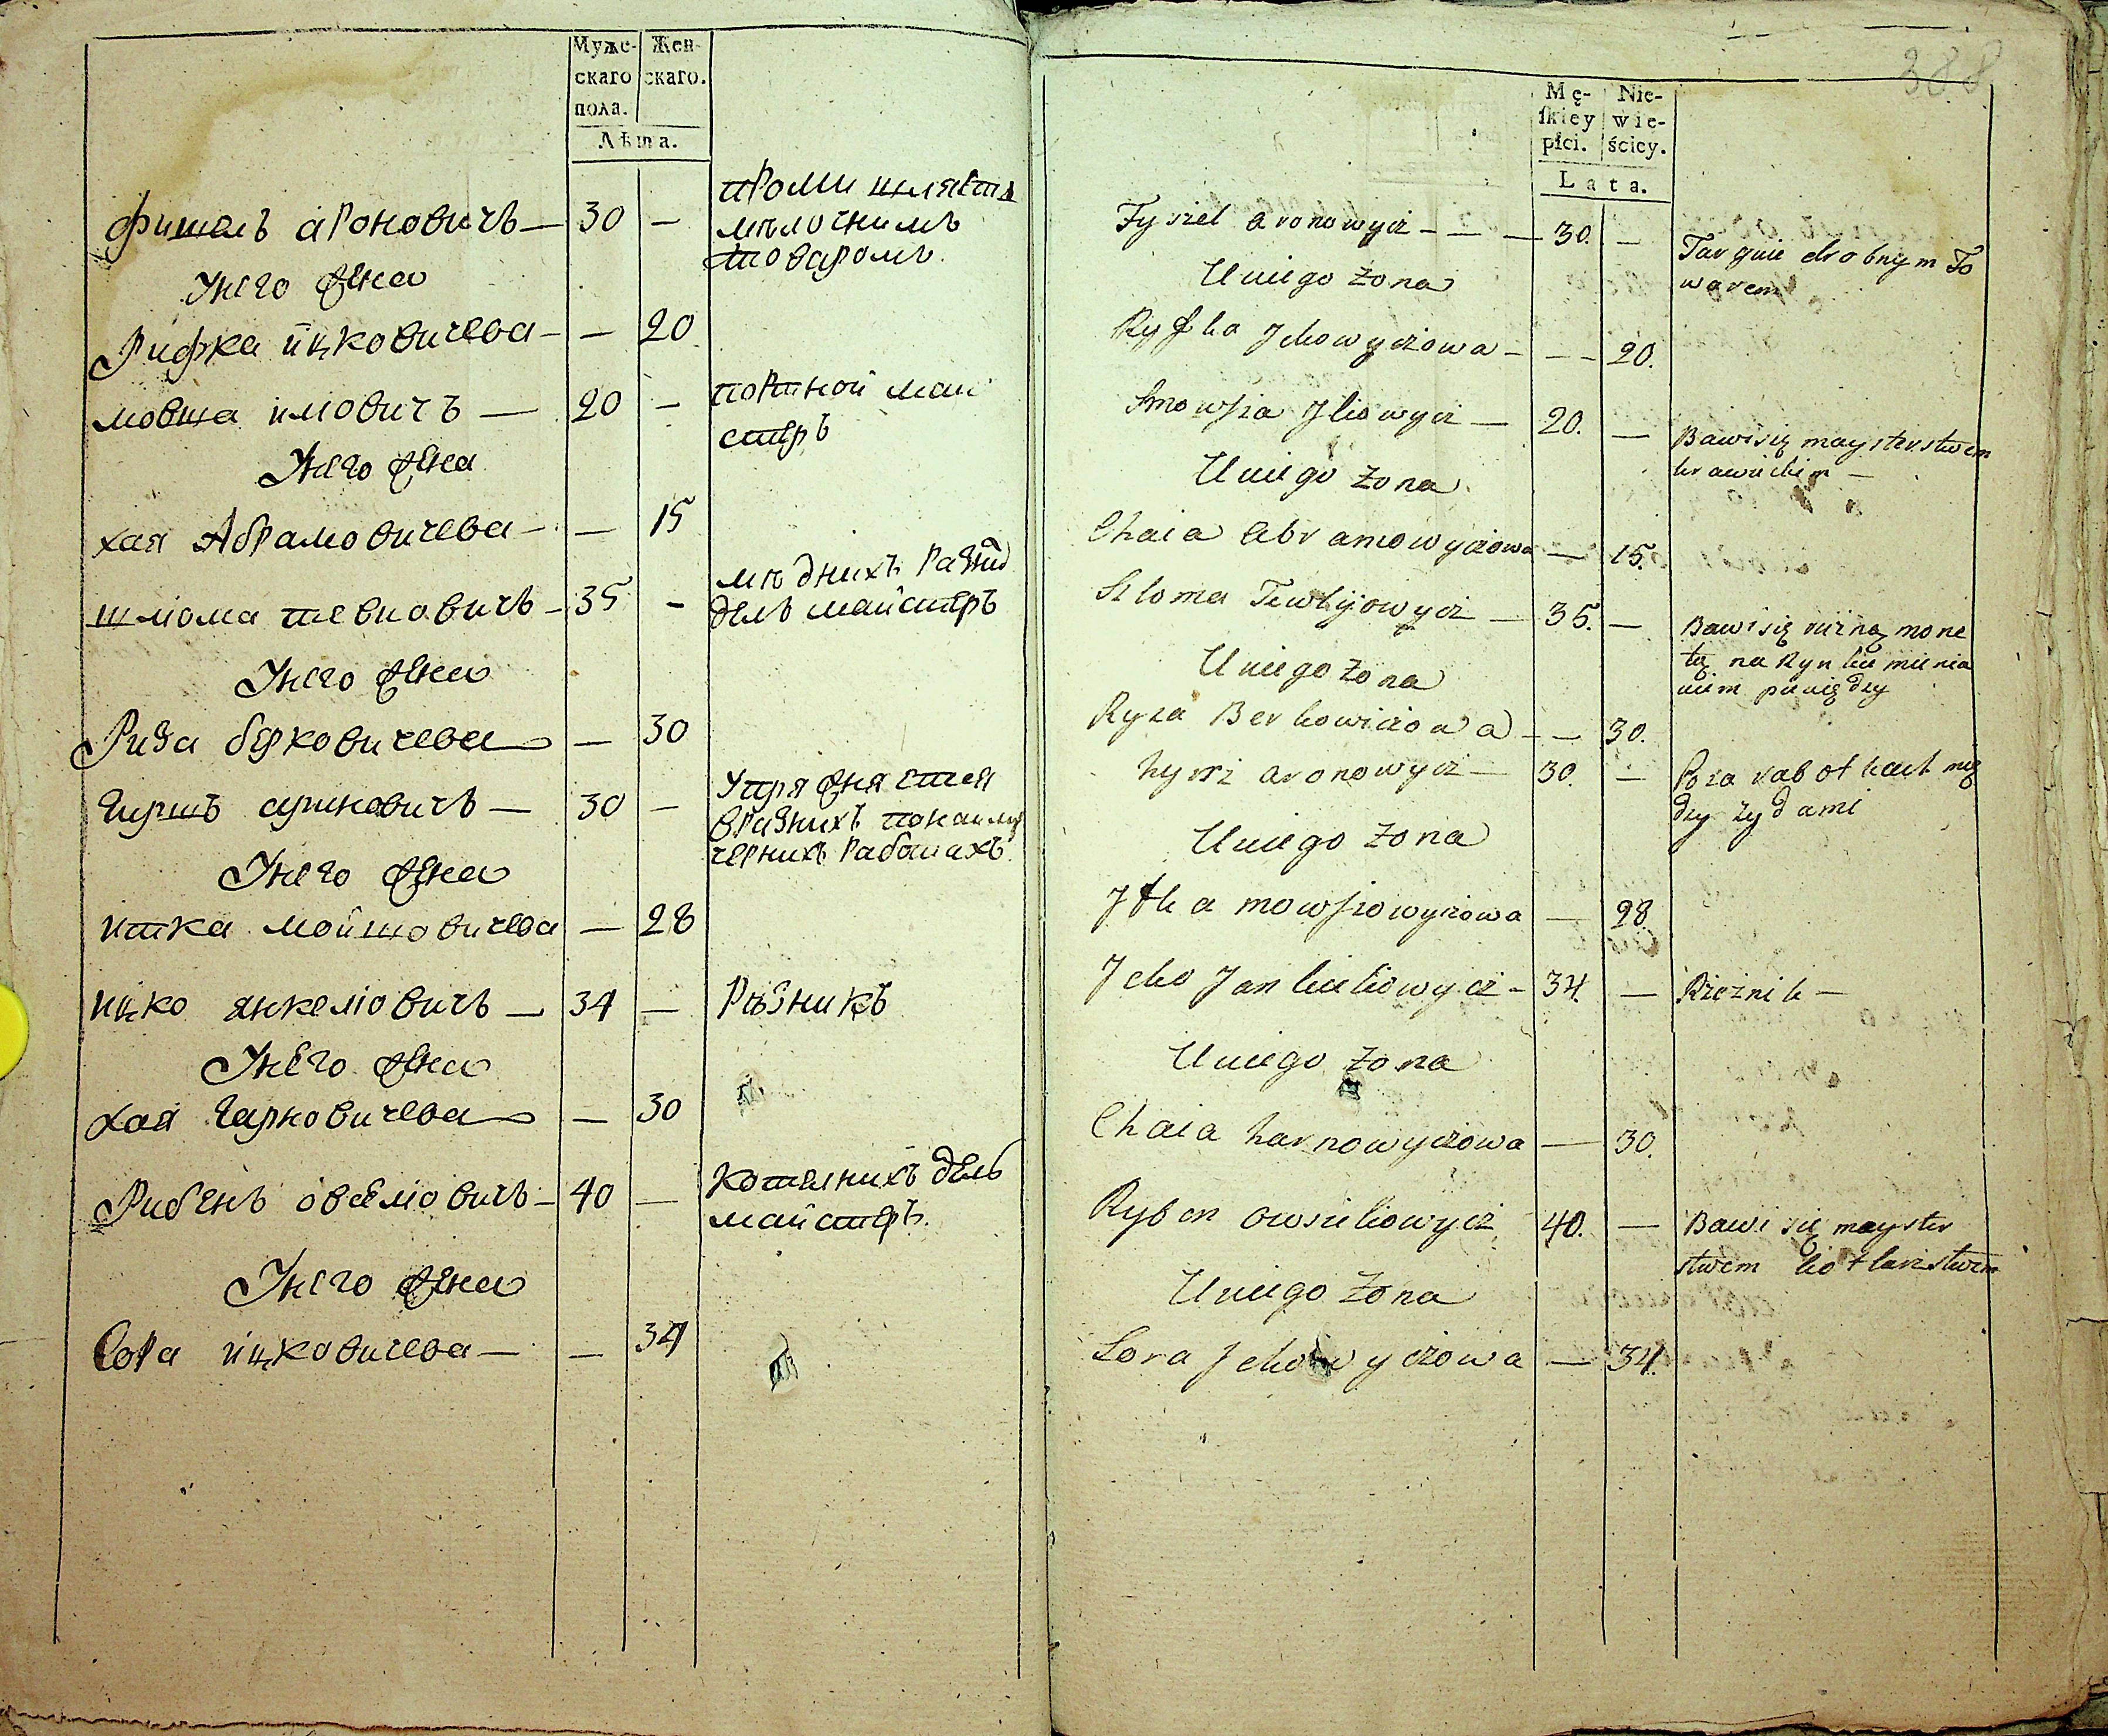 Муже- Жен-
скаго скаго.
пола.
Лѣта.
фишель ароновичъ — 30 —
промишляетъ
мѣлочнимъ
товаромъ.
Унего жена
Рифка ицковичева — — 20
мовша илиовичъ — 20 —
портной май
стеръ
Унего жена
хая Абрамовичева — — 15
шлиома тевиовичъ — 35 —
мѣднихъ
делъ майстеръ
Унего жена
Риза берковичева — 30
Гиршъ — 30 —
упряжняется
вразнихъ
чернихъ работахъ.
Унего жена
итка мойшовичева — 28
ицко янкелиовичъ — 34 —
Рѣзникъ
Унего жена
хая Гарновичева — 30
Рибенъ овселиовичъ — 40 —
котелнихъ делъ
майстеръ.
Унего жена
Сора ицковичева — — 34
388
Mę- Nie-
ſkiey wie-
płci. ścicy.
Lata.
Fyszel aronowycz — — — 30. —
Targuie drobnym To
warem
Uniego żona
Ryfka Jckowyczowa — — — 20.
Smowſza Jliowycz — 20. —
Bawi się maysterstwem
krawieckim —
Uniego żona
Chaia Abramowyczowa — 15.
Szloma Tewlijowycz — 35. —
Bawi się różną mone
tą na Rynku mienia
niem pieniędzy
Uniego żona
Ryza Berkowiczowa — — 30.
hyrsz aronowycz — 30. —
Po zarabotkach mię
dzy żydami
Uniego żona
Jtka mowſzowyczowa — 28.
Jcko Jankieliowycz — 34. —
Rzeznik —
Uniego żona
Chaia harnowyczowa — 30.
Ryben owsieliowycz 40. —
Bawi się mayster
stwem kotlarstwem
Uniego żona
Sora Jckowyczowa — 34.